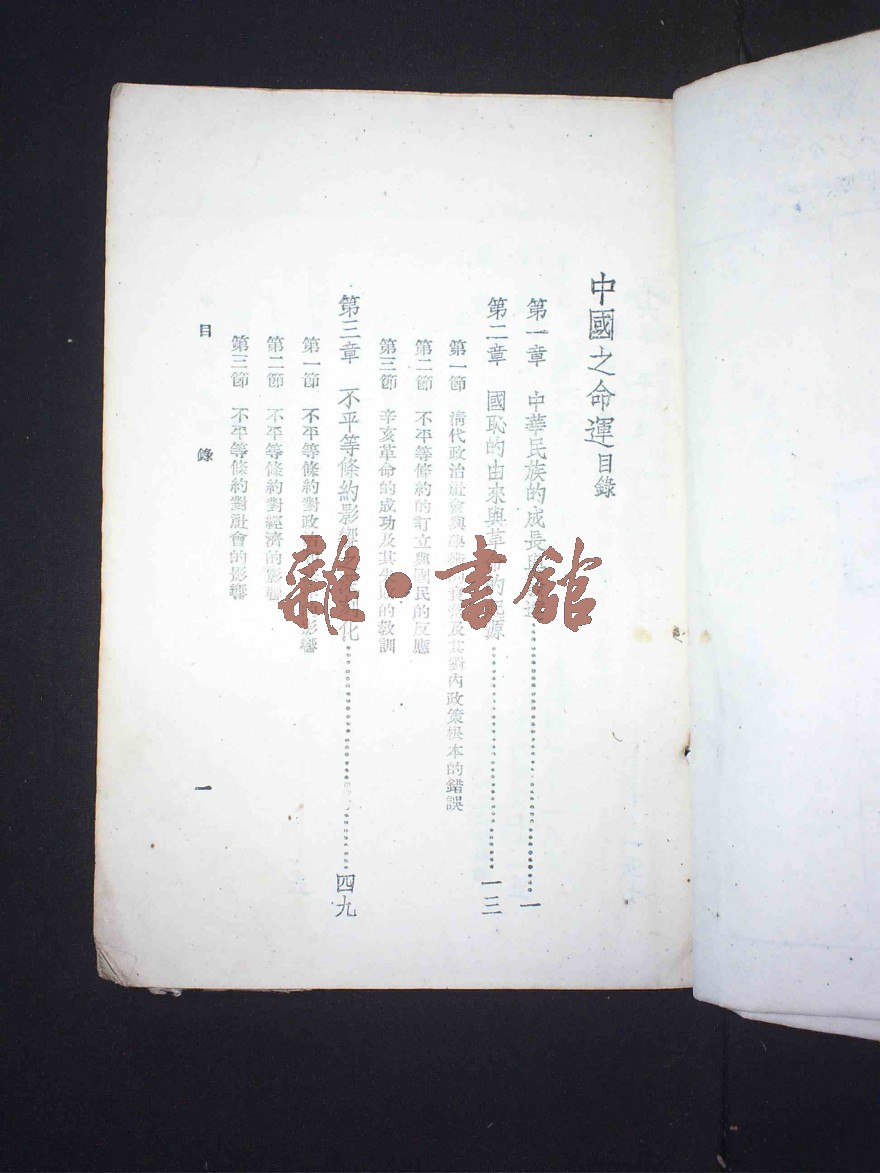 中國之命運目錄
第一章 中華民族的成長與
第二章 國恥的由來與革命的起源 一三
第一節 清代政治社會與學術的 及其對內政策根本的錯誤
第二節 不平等條約的訂立與國民的反應
第三節 辛亥革命的成功及其失敗的教訓
第三章 不平等條約影響之深刻化 四九
第一節 不平等條約對政治 影響
第二節 不平等條約對經濟的影響
第三節 不平等條約對社會的影響
目錄
一
雜·書館